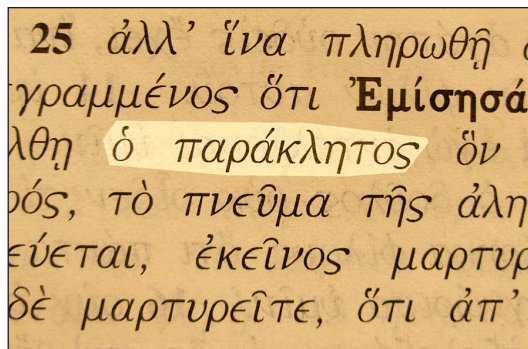 25 ἀλλ’ ἵνα πληρωθῇ
γραμμένος ὅτι Ἐμίσησά
λθῃ ὁ παράκλητος ὃν
ρός, τὸ πνεῦμα τῆς ἀλη
εύεται, ἐκεῖνος μαρτυρ
δὲ μαρτυρεῖτε, ὅτι ἀπ’